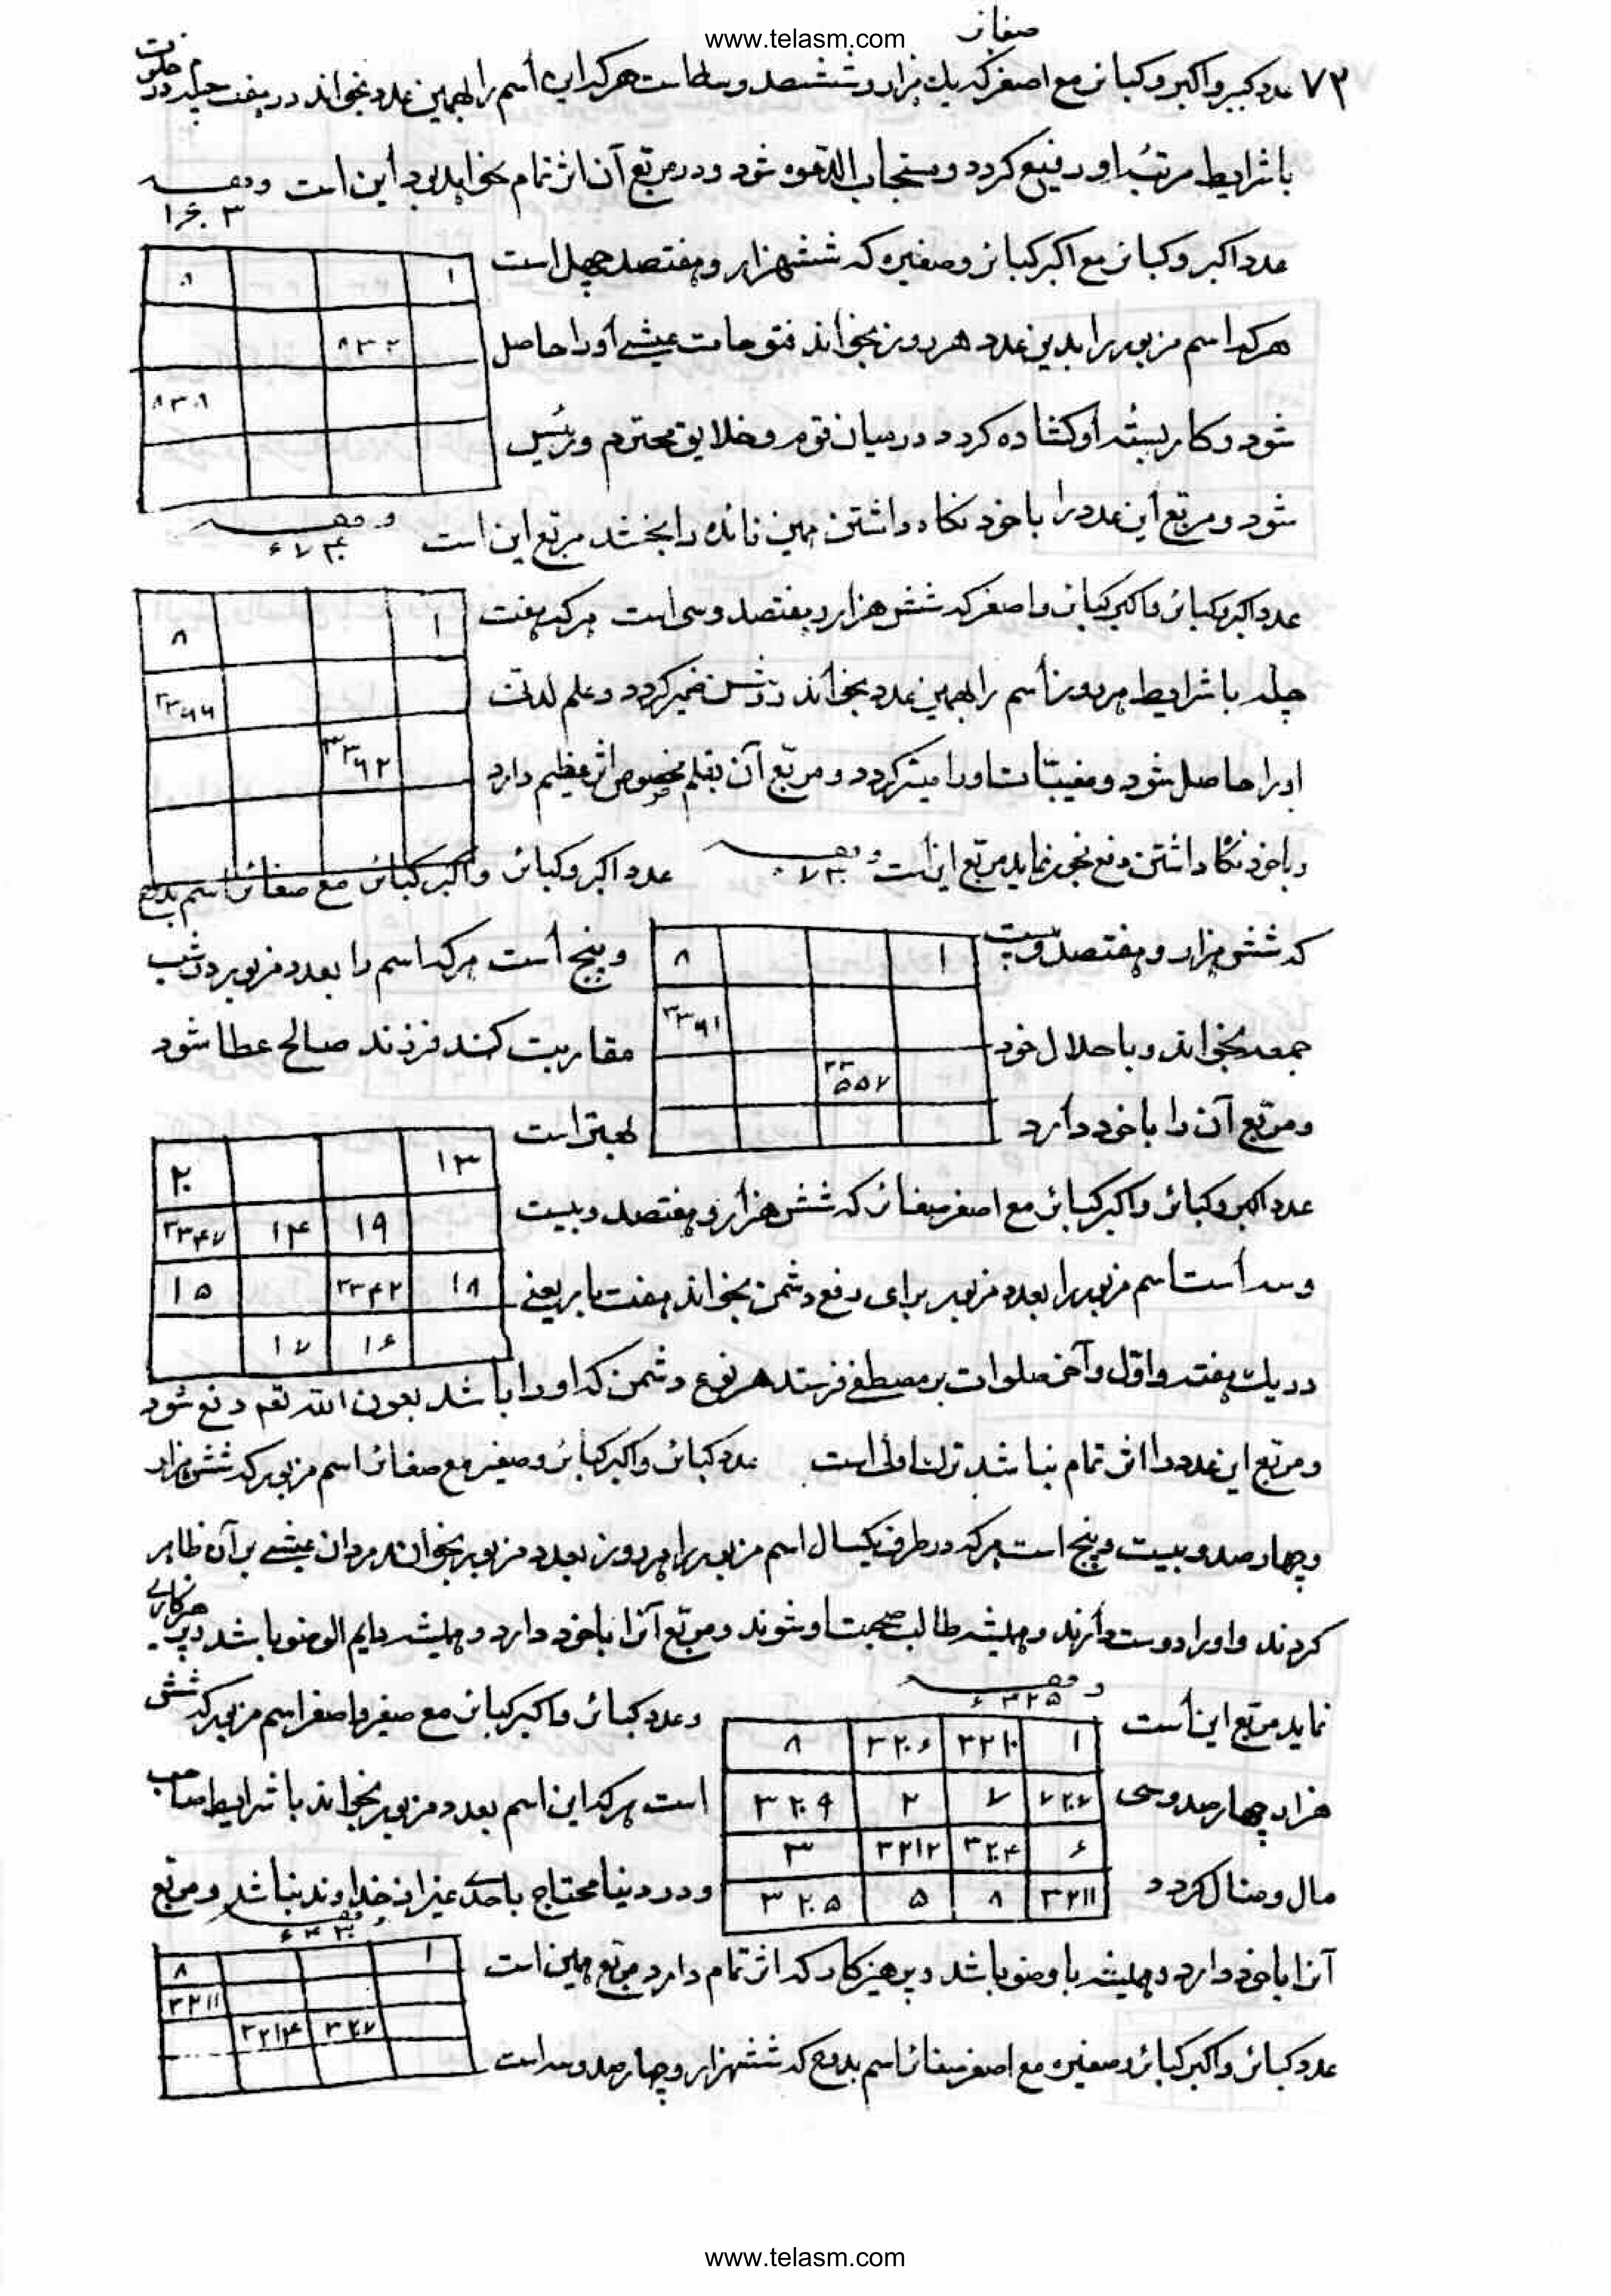 www.telasm.com
صغائر
۷۳ عدد کبیر و اکبر و کبائر مع اصغر که یک هزار و ششصد و سه است هر که این اسم را بهمین عدد بخواند در هفت چله در خلوت
با شرایط مرتبه او رفیع گردد و مستجاب الدعوه شود و در مربع آن اثر تمام بخواهد بود این است وفقه
۱۶۰۳
عدد اکبر و کبائر مع اکبر کبائر و صغیره که ششهزار و هفتصد چهل است
۱ ۸
هر که اسم مزبور را بدین عدد هر روز بخواند فتوحات غیبی او را حاصل
شود و کار بسته او گشاده گردد در میان قوم و خلایق محترم و رئیس
شود و مربع این عدد را با خود نگاه داشتن همین فائده را بخشد مربع این است وفقه
۶۷۴۰
عدد اکبر و کبائر و اکبر کبائر و اصغر که شش هزار و هفتصد و سی است هر که هفت
۱ ۸
چله با شرایط هر روز اسم را بهمین عدد بخواند روشن ضمیر گردد و علم لدنی
۳۳۶۶
او را حاصل شود و مغیبات او را میسر گردد و مربع آن بقلم مخصوص اثر عظیم دارد
۳۳۶۲
و با خود نگاه داشتن دفع نحوز نماید مربع این است وفقه عدد اکبر و کبائر و اکبر کبائر مع صغائر اسم بدوح
که شش هزار و هفتصد و بیست و پنج است هر که اسم را بعدد مزبور در شب
۱ ۸
جمعه بخواند و با حلال خود مقاربت کند فرزند صالح عطا شود
۳۳۶۱
و مربع آن را با خود دارد بهتر است
۱۳ ۲۰
عدد اکبر و کبائر و اکبر کبائر مع اصغر صغائر که شش هزار و هفتصد و بیست
۱۹ ۱۴ ۳۳۴۷
و سه است اسم مزبور را بعدد مزبور برای دفع دشمن بخواند هفت بار یعنی
۱۸ ۳۳۴۲ ۱۵
۱۶ ۱۷
در یک هفته و اول و آخر صلوات بر مصطفی فرستد هر نوع دشمن که او را باشد بعون الله تعم دفع شود
و مربع این عدد را اثر تمام نباشد ترک اولی است عدد کبائر و اکبر کبائر و صغیر مع صغائر اسم مزبور که شش هزار
و چهار صد و بیست و پنج است هر که در طرف یکسال اسم مزبور را هر روز بعدد مزبور بخواند مردان غیبی بر آن ظاهر
گردند و او را دوست دارند و همیشه طالب صحبت او شوند و مربع آنرا با خود دارد و همیشه دایم الوضو باشد و پرهیزکاری
نماید مربع این است وفقه و عدد کبائر و اکبر کبائر مع صغیر و اصغر اسم مزبور که شش
۱ ۳۲۱۰ ۳۲۰۶ ۸
هزار چهار صد و سی است هر که این اسم بعدد مزبور بخواند با شرایط صاحب
۷ ۲ ۳۲۰۹
۶ ۳۲۰۴ ۳۲۱۲ ۳
مال و منال گردد و در دنیا محتاج باحدی غیر از خداوند نباشد و مربع
۳۲۱۱ ۸ ۵ ۳۲۰۵
۶۴۳۰
آنرا با خود دارد و همیشه با وضو باشد و پرهیزکار که اثر تمام دارد مربع همین است
۱ ۸
۳۲۱۱
۳۲۰۷ ۳۲۱۴
عدد کبائر و اکبر کبائر و صغیره مع اصغر صغائر اسم بدوح که ششهزار و چهار صد و سه است
www.telasm.com